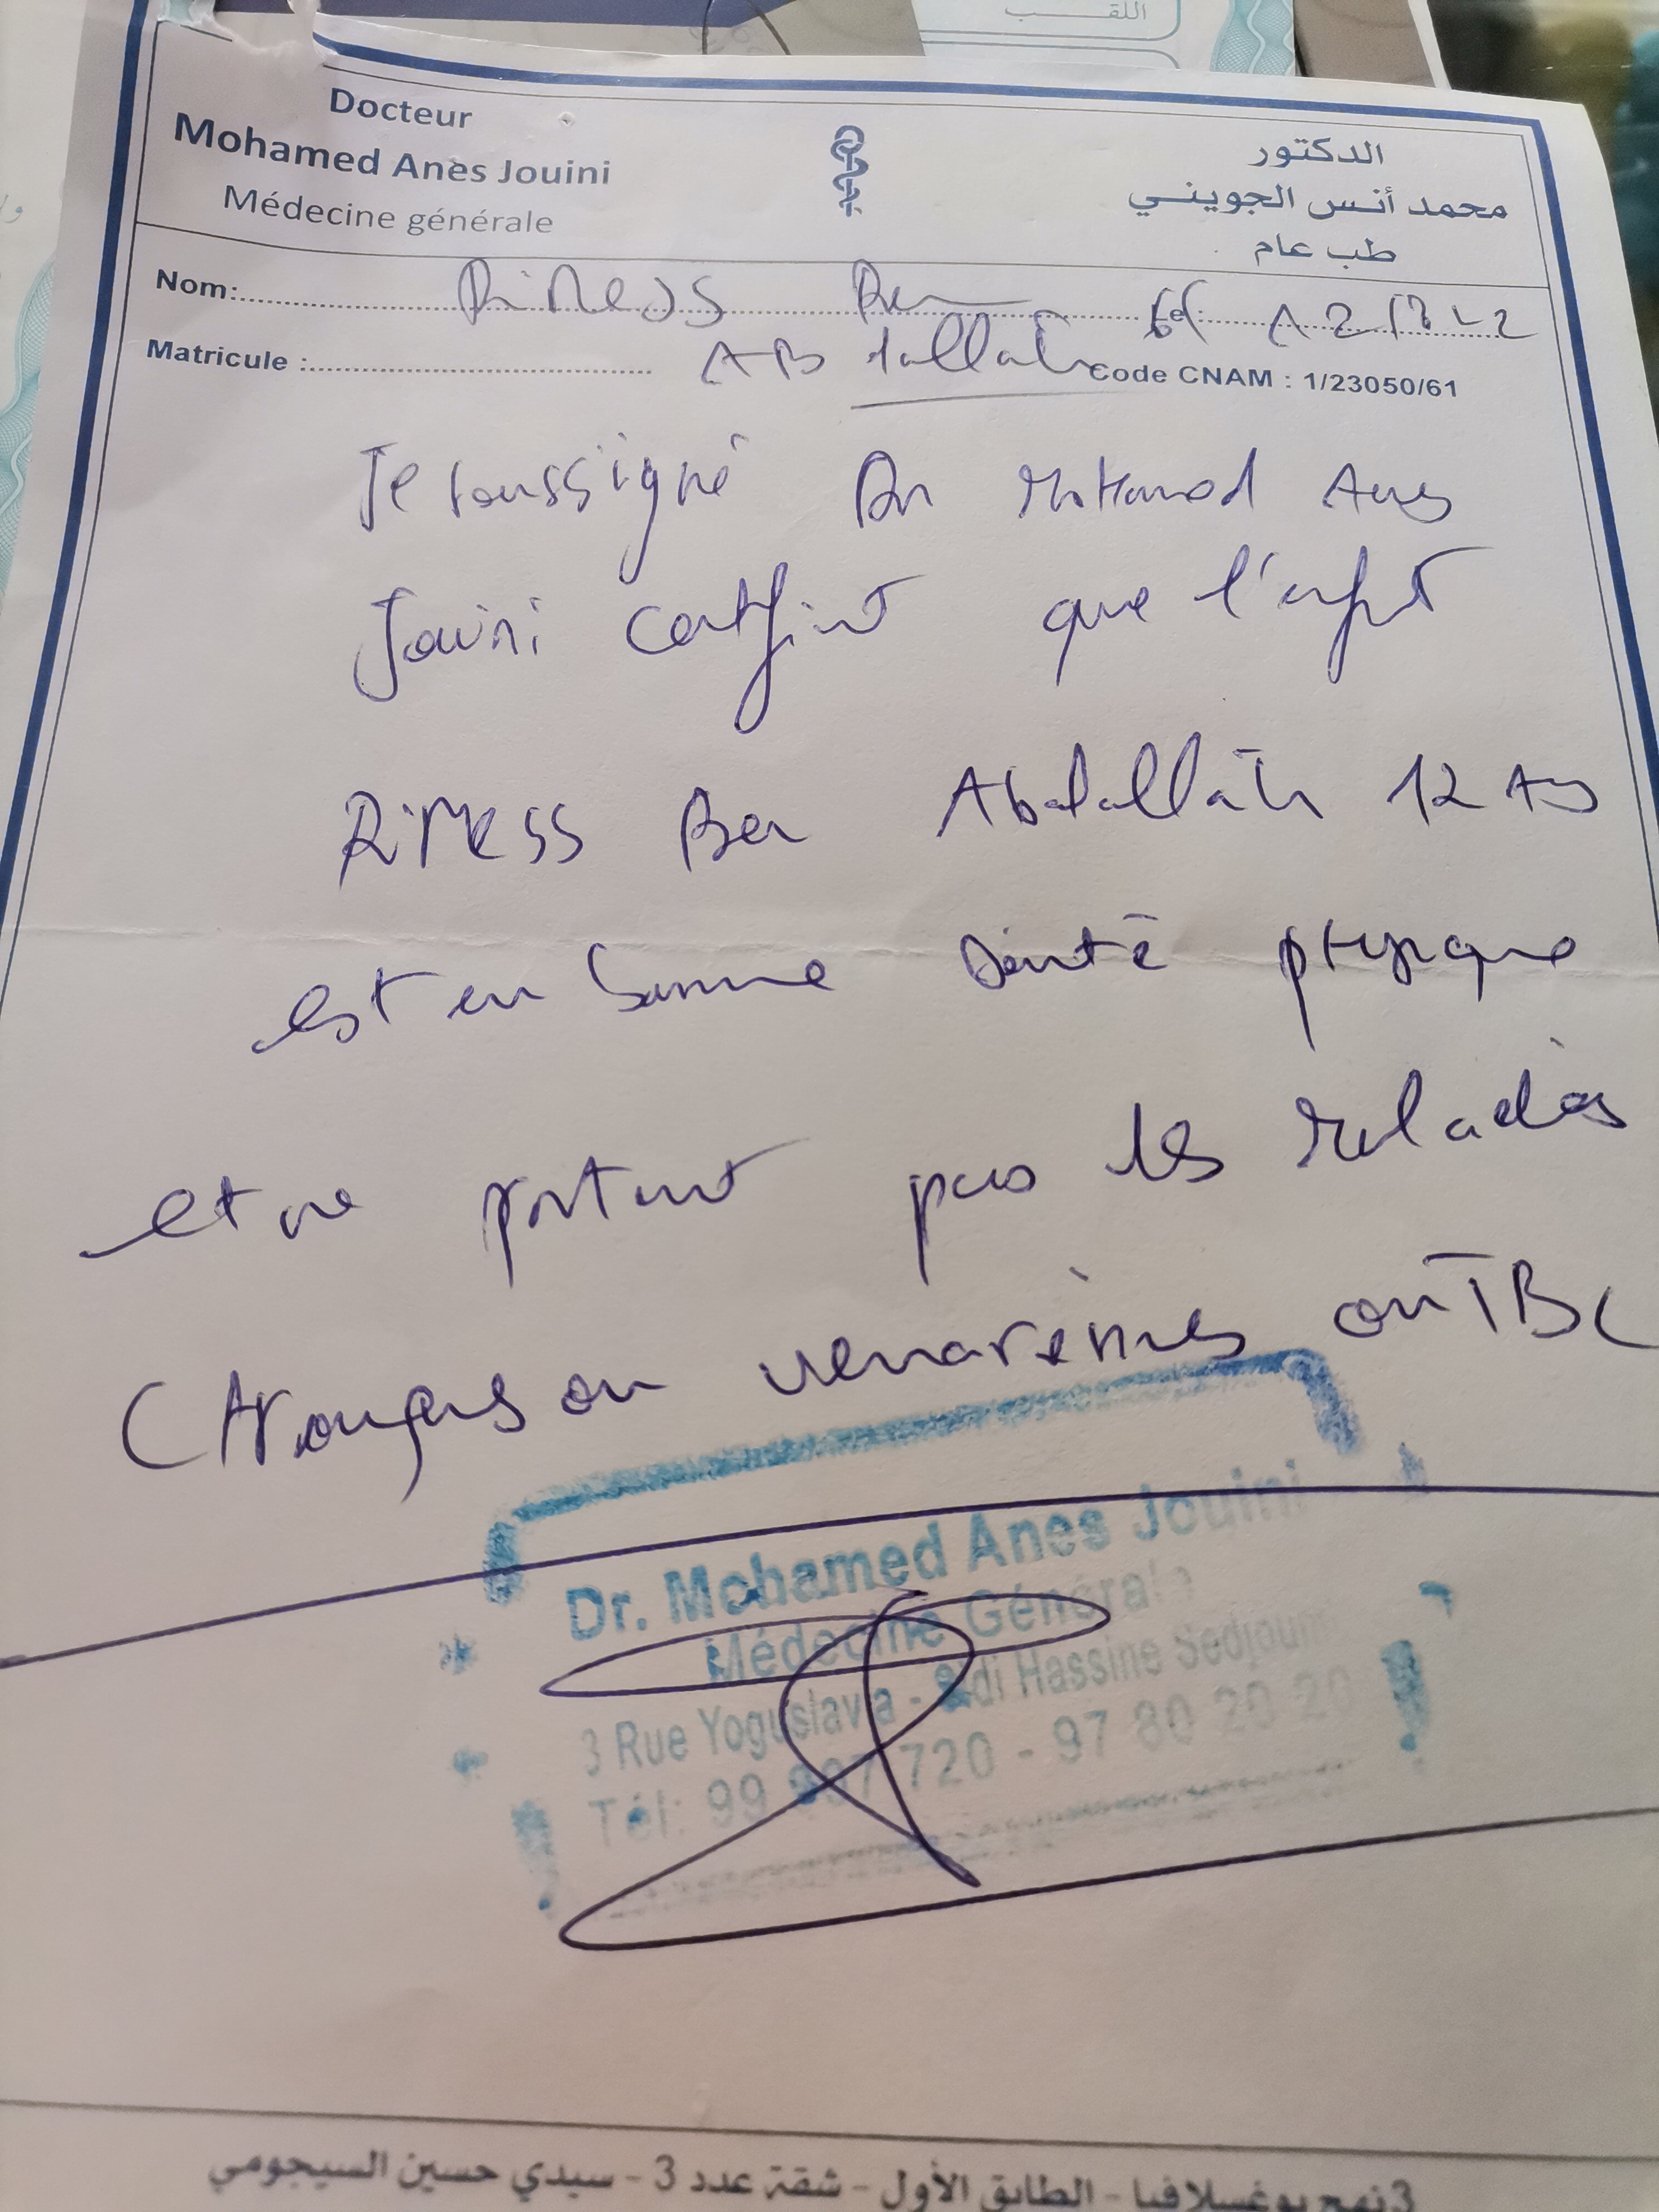 اللقب
Docteur
Mohamed Anes Jouini
Médecine générale
الدكتور
محمد أنس الجويني
طب عام
Nom: Rimess Ben
Matricule : ABdallah Code CNAM : 1/23050/61
Je soussigné Dr Mohamed Anes
Jouini certifiant que l'enfant
Rimess Ben Abdallah 12 Ans
est en bonne Santé physique
et ne portant pas les maladies
ou vénariennes ou TBC
Dr. Mohamed Anes Jouini
Médecine Générale
3 Rue Yoguslavia - Sidi Hassine Sedjoumi
Tél: 99 720 - 97 80 20 20
3 نهج يوغسلافيا - الطابق الأول - شقة عدد 3 - سيدي حسين السيجومي